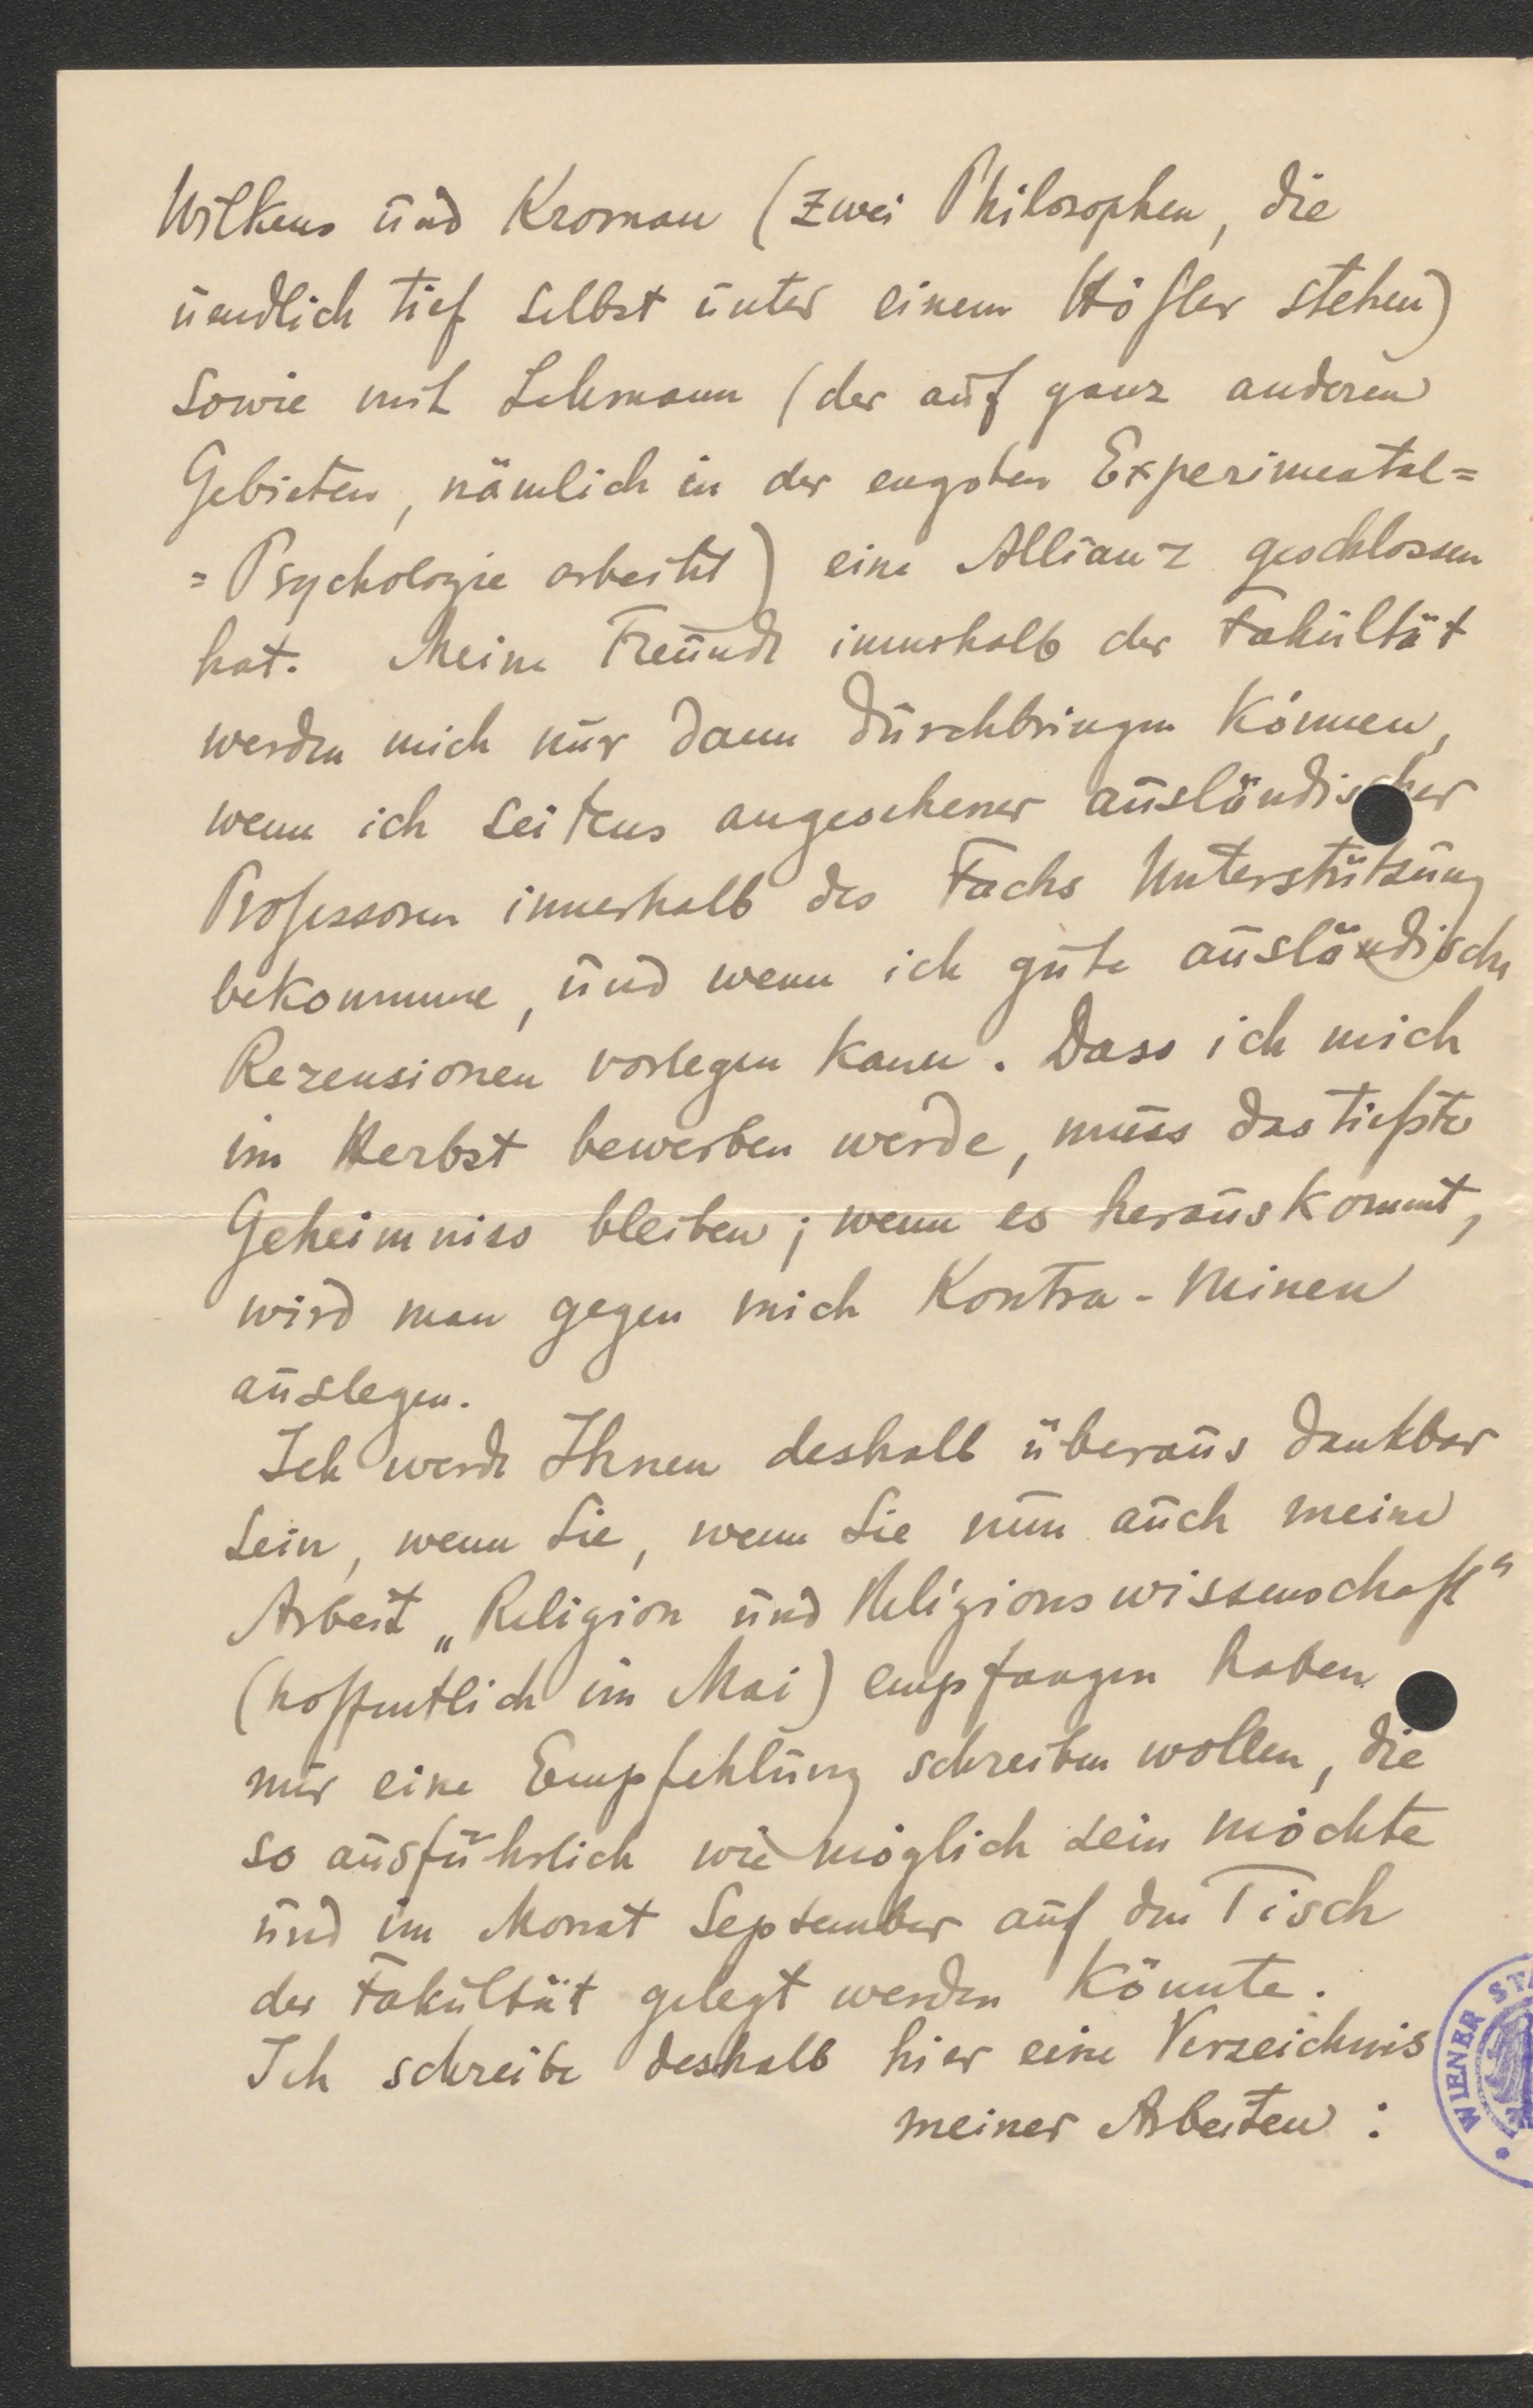 Wilkens und Kroman (zwei Philosophen, die
uendlich tief selbst unter einem Höfler stehen)
sowie mit Lehmann (der auf ganz anderen
Gebieten, nämlich in der engsten Experimental=
=Psychologie arbeitet) eine Allianz geschlossen
hat. Meine Freunde innerhalb der Fakultät
werden mich nur dann durchbringen können,
wenn ich seitens angesehener ausländischer
Professoren innerhalb des Fachs Unterstützung
bekomme, und wenn ich gute ausländische
Rezensionen vorlegen kann. Dass ich mich
im Herbst bewerben werde, muss das tiefste
Geheimniss bleiben; wenn es herauskommt,
wird man gegen mich Kontra-Minen
auslegen.
Ich werde Ihnen deshalb überaus dankbar
sein, wenn Sie, wenn Sie nun auch meine
Arbeit „Religion und Religionswissenschaft"
(hoffentlich im Mai) empfangen haben
mir eine Empfehlung schreiben wollen, die
so ausführlich wie möglich sein möchte
und im Monat September auf den Tisch
der Fakultät gelegt werden könnte.
Ich schreibe deshalb hier eine Verzeichnis
meiner Arbeiten:
WIENER ST